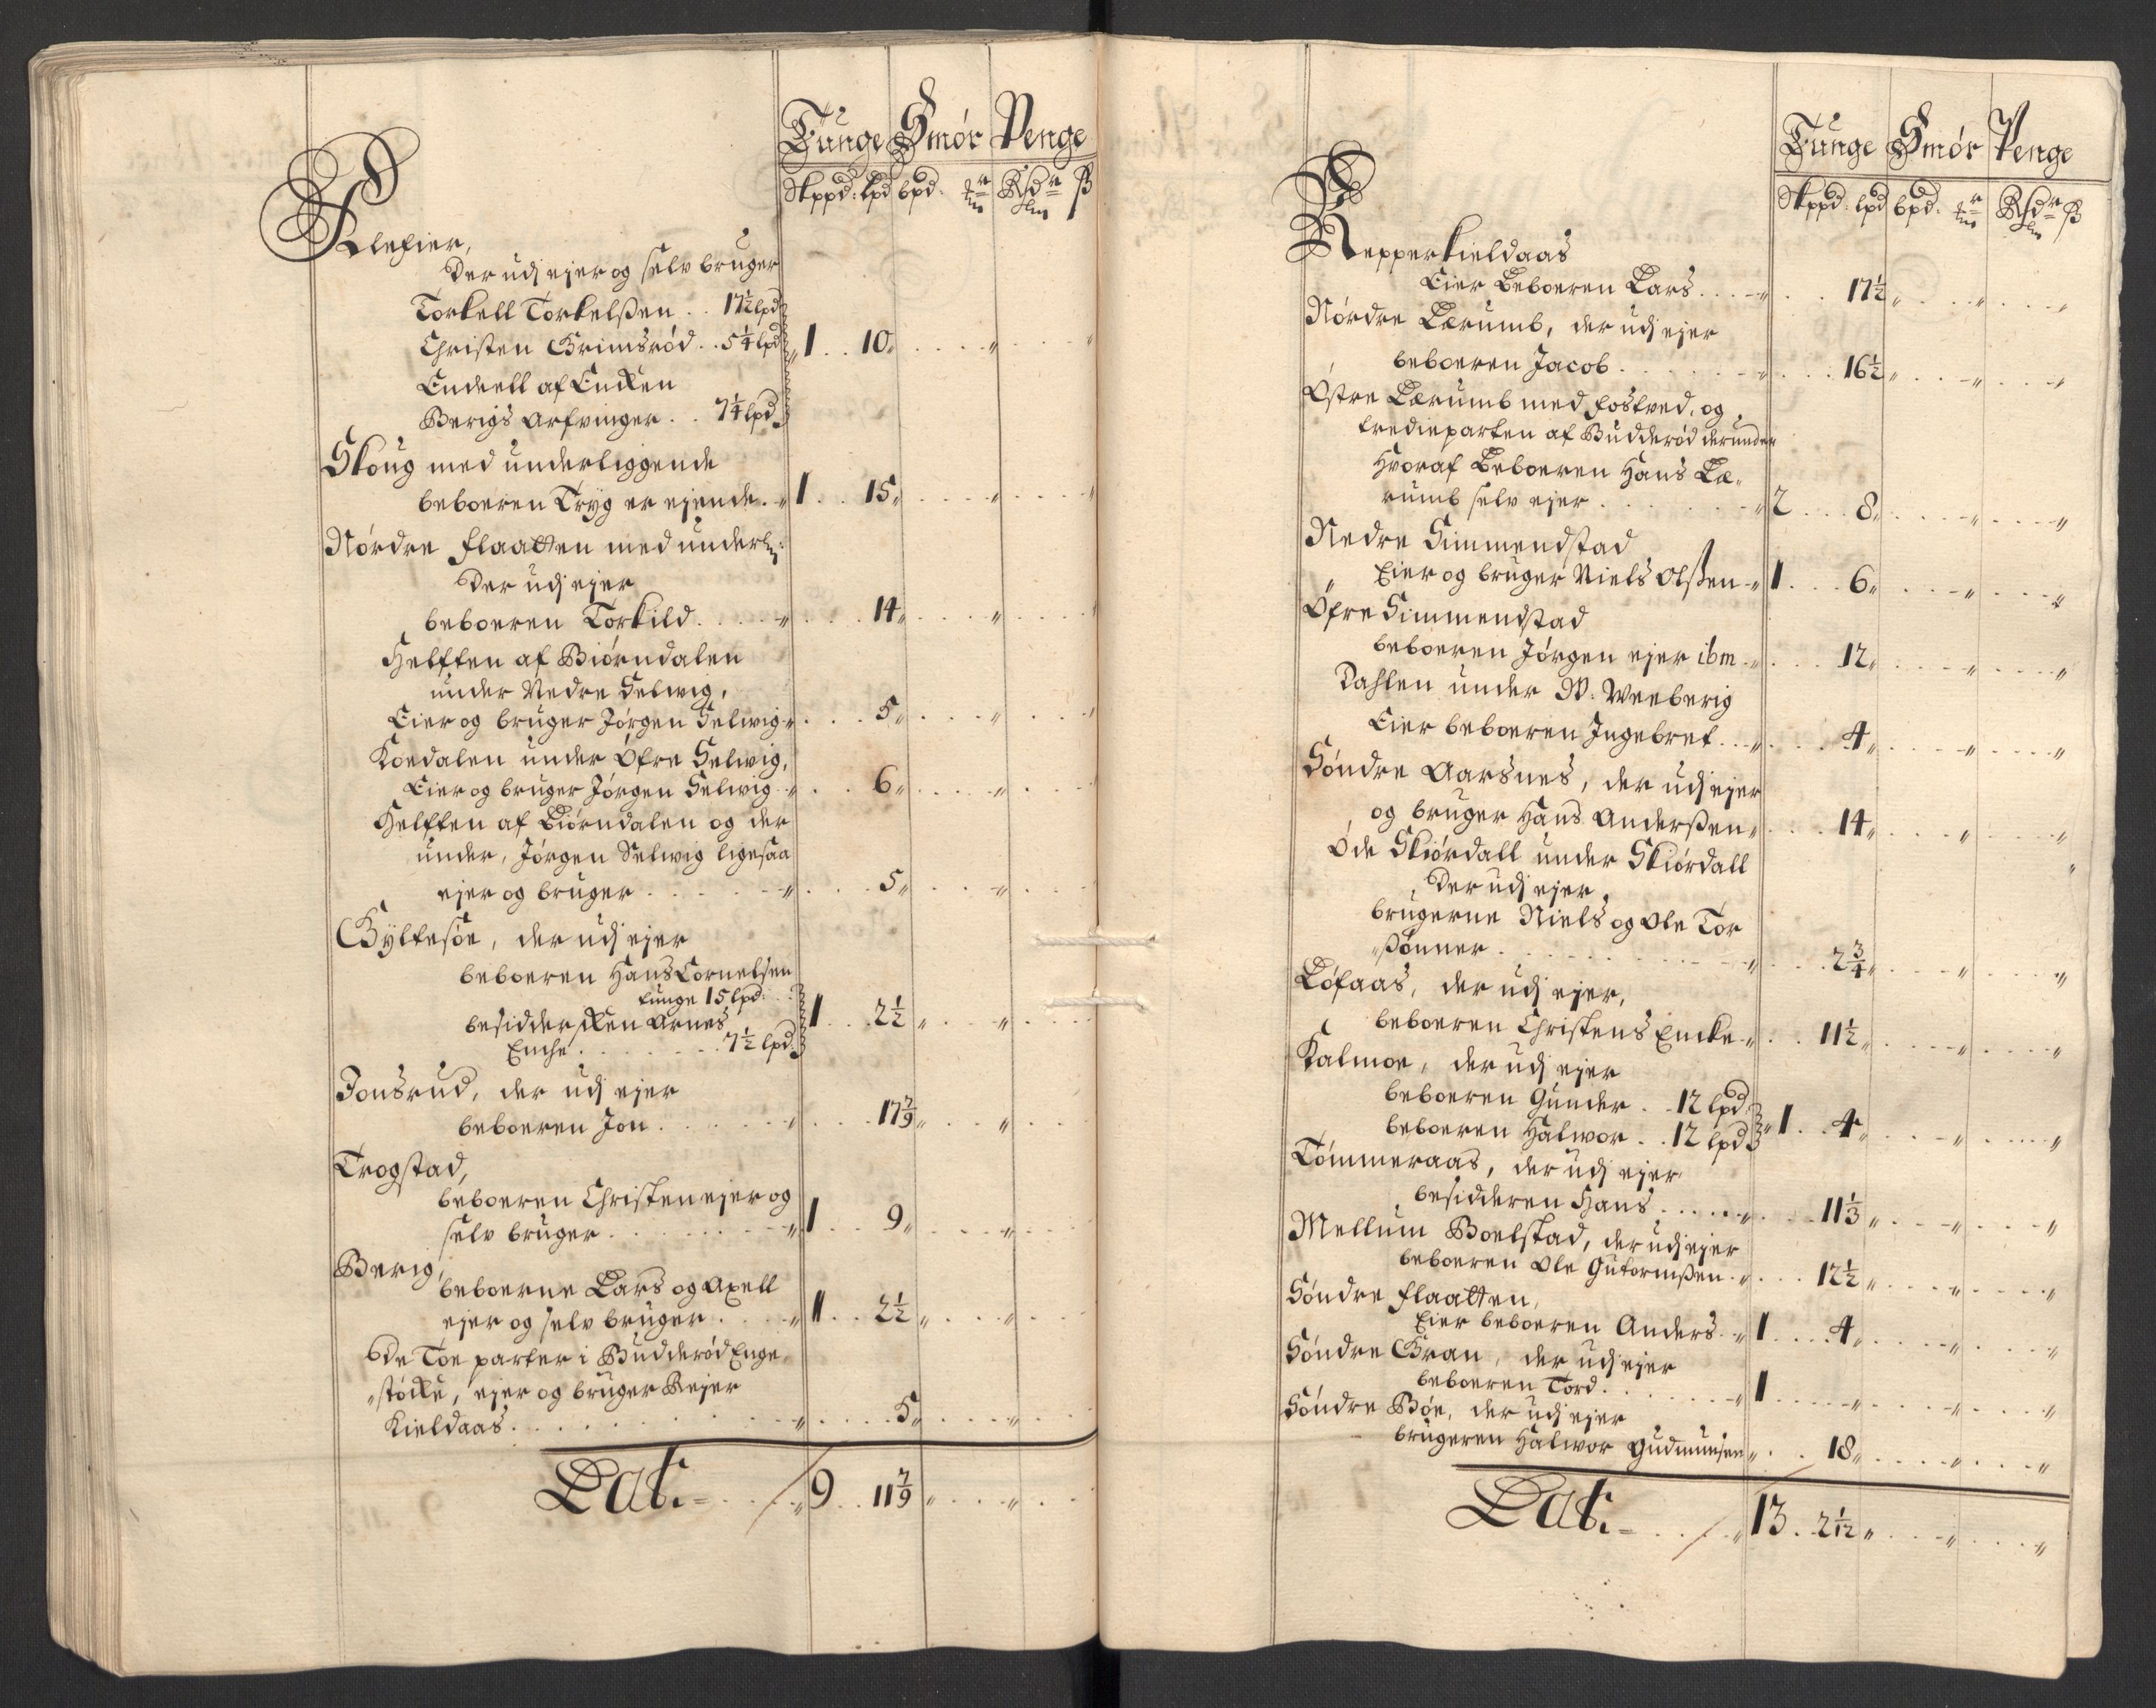 Tunge Smør Penge
Skppd: lpd bpd. Rdr ß
Klefier,
der udj ejer og selv bruger
Torkell Torkelßen .. 17½ lpd
Christen Grimsrød .. 5¼ lpd 1 .. 10
Endeell af Encken
Berigs Arfvinger .. 7¼ lpd
Skoug med underliggende
beboeren Tryg er ejende. 1 .. 15
Nørdre Flaatten med underl:
der udj ejer
beboeren Torkild 14
Helfften af Biørndalen
under Nedre Selwig,
Eier og bruger Jørgen Selwig 5
Koedalen under Øfre Selwig,
Eier og bruger Jørgen Selwig 6
Helfften af Biørndalen og der
under, Jørgen Selwig ligesaa
ejer og bruger 5
Gyltesøe, der udj ejer
beboeren Hans Cornelsen
tunge 15 lpd: 1 .. 2½
besidder Arnes
Enche 7½ lpd
Jonsrud, der udj ejer
beboeren Jon 17 7/9
Trogstad,
beboeren Christen ejer og
selv bruger 1 .. 9
Berig,
beboerne Lars og Axell
ejer og selv bruger 1 .. 2½
De Toe parter i Budderød Enge
støcke, ejer og bruger Rejer
Kieldaas 5
Lat. 9 .. 11 7/9
Tunge Smør Penge
Skppd: lpd bpd. Rdr ß
Repperkieldaas
Eier Beboeren Lars 17½
Nørdre Lærumb, der udj ejer
beboeren Jacob 16½
Østre Lærumb med fostved, og
tredieparten af Budderød derunder
Hvoraf Beboeren Hans Læ
rumb selv ejer 2 8
Nedre Simmendstad
Eier og bruger Niels Olßen 1 6
Øfre Simmendstad
beboeren Jørgen ejer ibm 12
Dahlen under W: Weeberig
Eier beboeren Ingebret 4
Søndre Aarsnes, der udj ejer
og bruger Hans Anderßen 14
Øde Skiørdall under Skiørdall
der udj ejer
brugerne Niels og Ole Tor
ßønner 2¾
Løfaas, der udj ejer,
beboeren Christens Encke 11½
Kalmoe, der udj ejer
beboeren Gunder .. 12 lpd
beboeren Halwor .. 12 lpd 1 4
Tømmeraas, der udj ejer
besidderen Hans 11⅓
Mellum Boelstad, der udj ejer
beboeren Ole Gutormßen 12½
Søndre Flaatten,
Eier beboeren Anders 1 4
Søndre Gran, der udj ejer
beboeren Tord 1
Søndre Bøe, der udj ejer
brugeren Halwor Gudmunsen 18
Lat. 13 .. 2 1/12